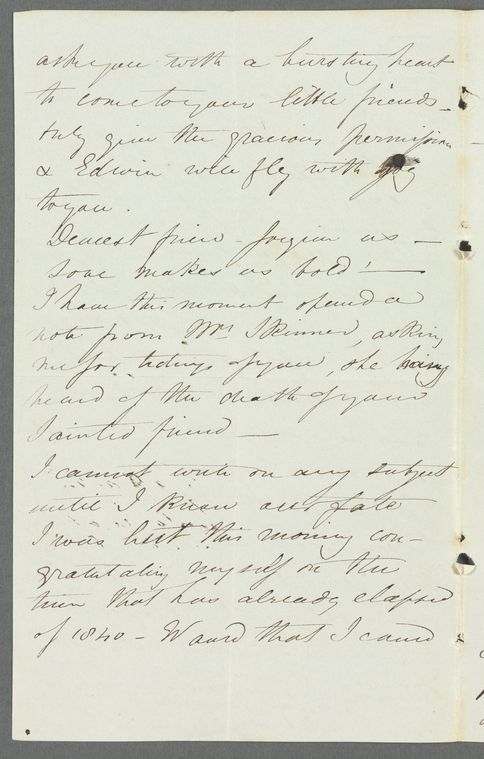 ask you with a bursting heart
to come to your little friends –
only give the gracious permission
& Edwin will fly with joy
to you.
Dearest friend – forgive us –
Love makes us bold! –
I have this moment opened a
note from Mrs Skinner, asking
me for tidings of you, she having
heard of the death of your
Sainted friend –
I cannot write on any subject
until I know our fate
I was but this morning con-
gratulating myself on the
time that has already elapsed
of 1840 – Would that I could